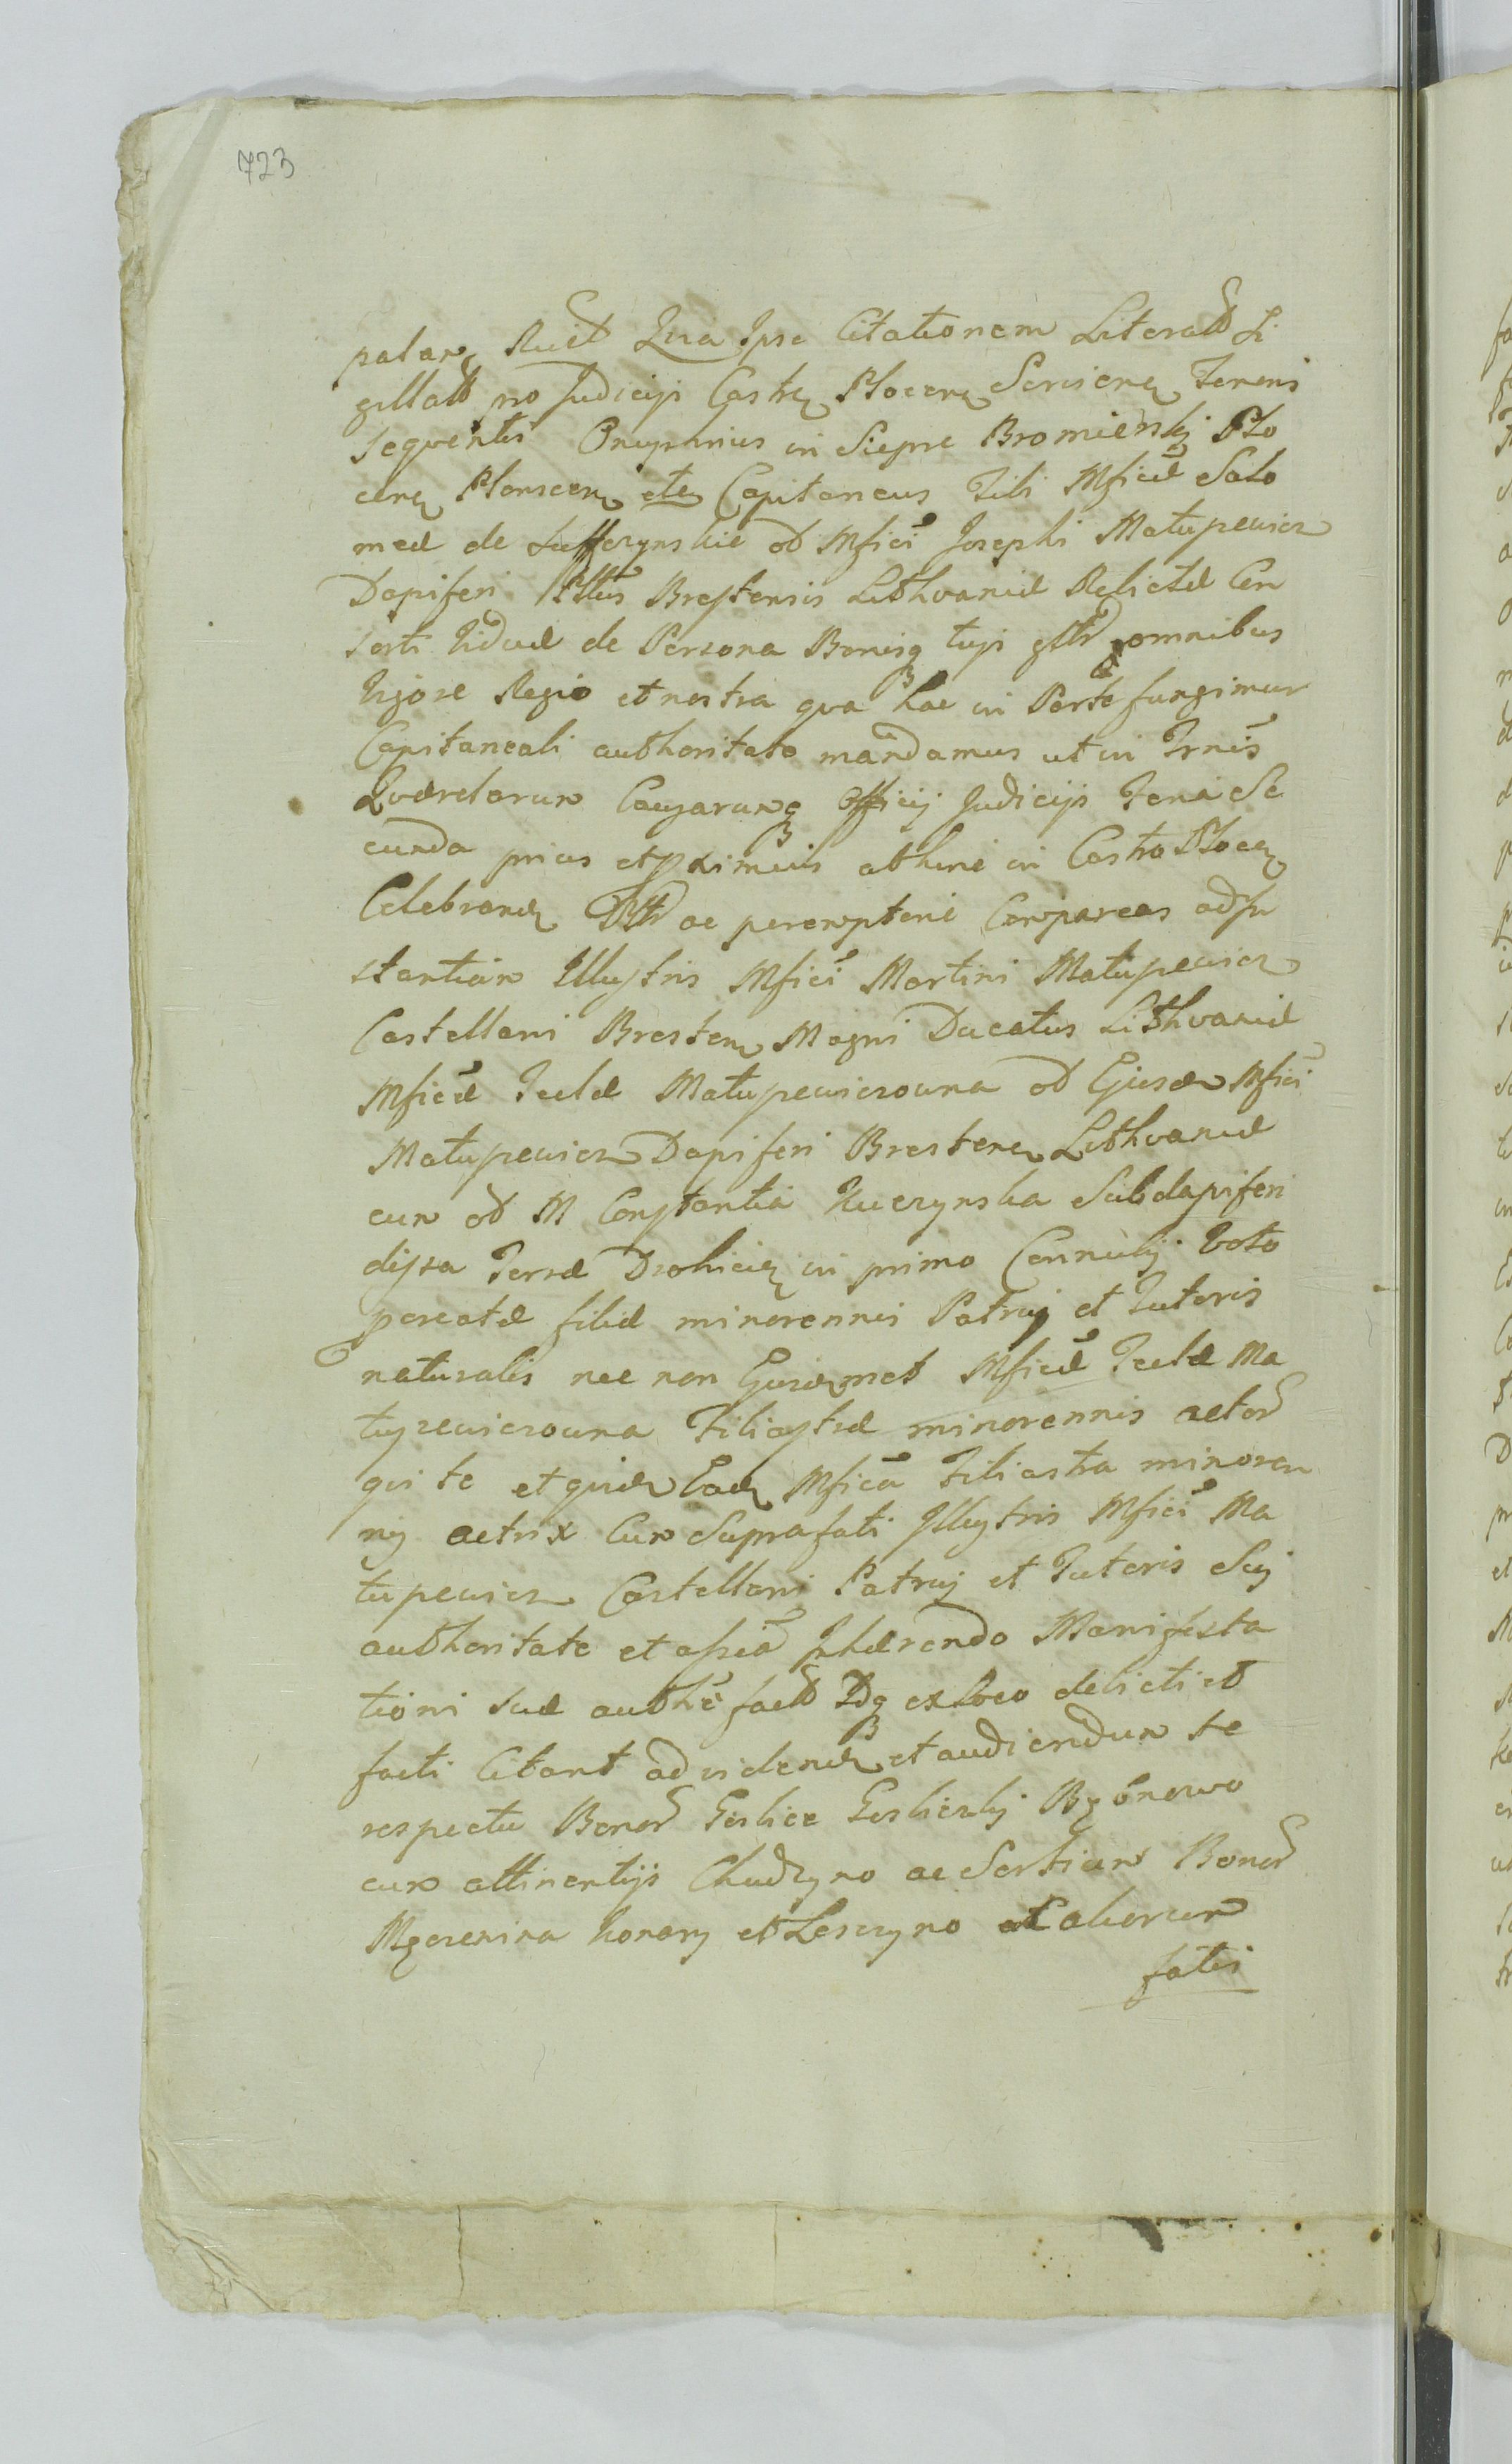 723
palam Quia Ipse Citationem Literal Si
gillal pro Judicijs Castr Plocen Servien Tenoris
sequentis Onuphrius in Siepre Bromierskj Plo
cen Plonscen etc Capitaneus Tibi Mficæ Salo
meæ de Suffczynskie od Mfici Josephi Matuszewicz
Dapiferi Plltus Brestensis Lithvaniæ Relictæ Con
sorti Viduæ de Persona Bonisq tuis omnibus
Vigore Regio et nostra qva hac in Parte fungimur
Capitaneali authoritate mandamus ut in Trnis
Qværelarum Causarumq Officij Judicijs Feria Se
cunda prius et pximius abhinc in Castro Plocen
Celebrand ac peremptorie Compareas ad In
stantiam Illustris Mfici Martini Matuszewicz
Castellani Bresten Magni Ducatus Lithvaniæ
Mficæ Teclæ Matuszewiczowna od Ejusdem Mfici
Matuszewicz Dapiferi Bresten Lithvaniæ
cum od M Constantia Kuczynska Subdapiferi
dissa Terræ Drohicien in primo Connubij Voto
pcreatæ filiæ minorennis Patruj et Tutoris
naturalis nec non Ejusdemmet Mficæ Teclæ Ma
tuszewiczowna Filiastræ minorennis actor
qui te et quidem Eadem Mfica Filiastra minoren
nis actrix cum Suprafati Illustris Mfici Ma
tuszewicz Castellani Patruj et Tutoris Suj
authoritate et assia Inhærendo Manifesta
tioni suæ authe fact Idq ex loco delicti et
facti Citant ad videnda et audiendum te
respectu Bonor Goslice Goslickj Bronowo
cum attinentijs Chudzyno ac Sortium Bonor
Mzerenina Konary et Leszczyno et aliorum
fatis